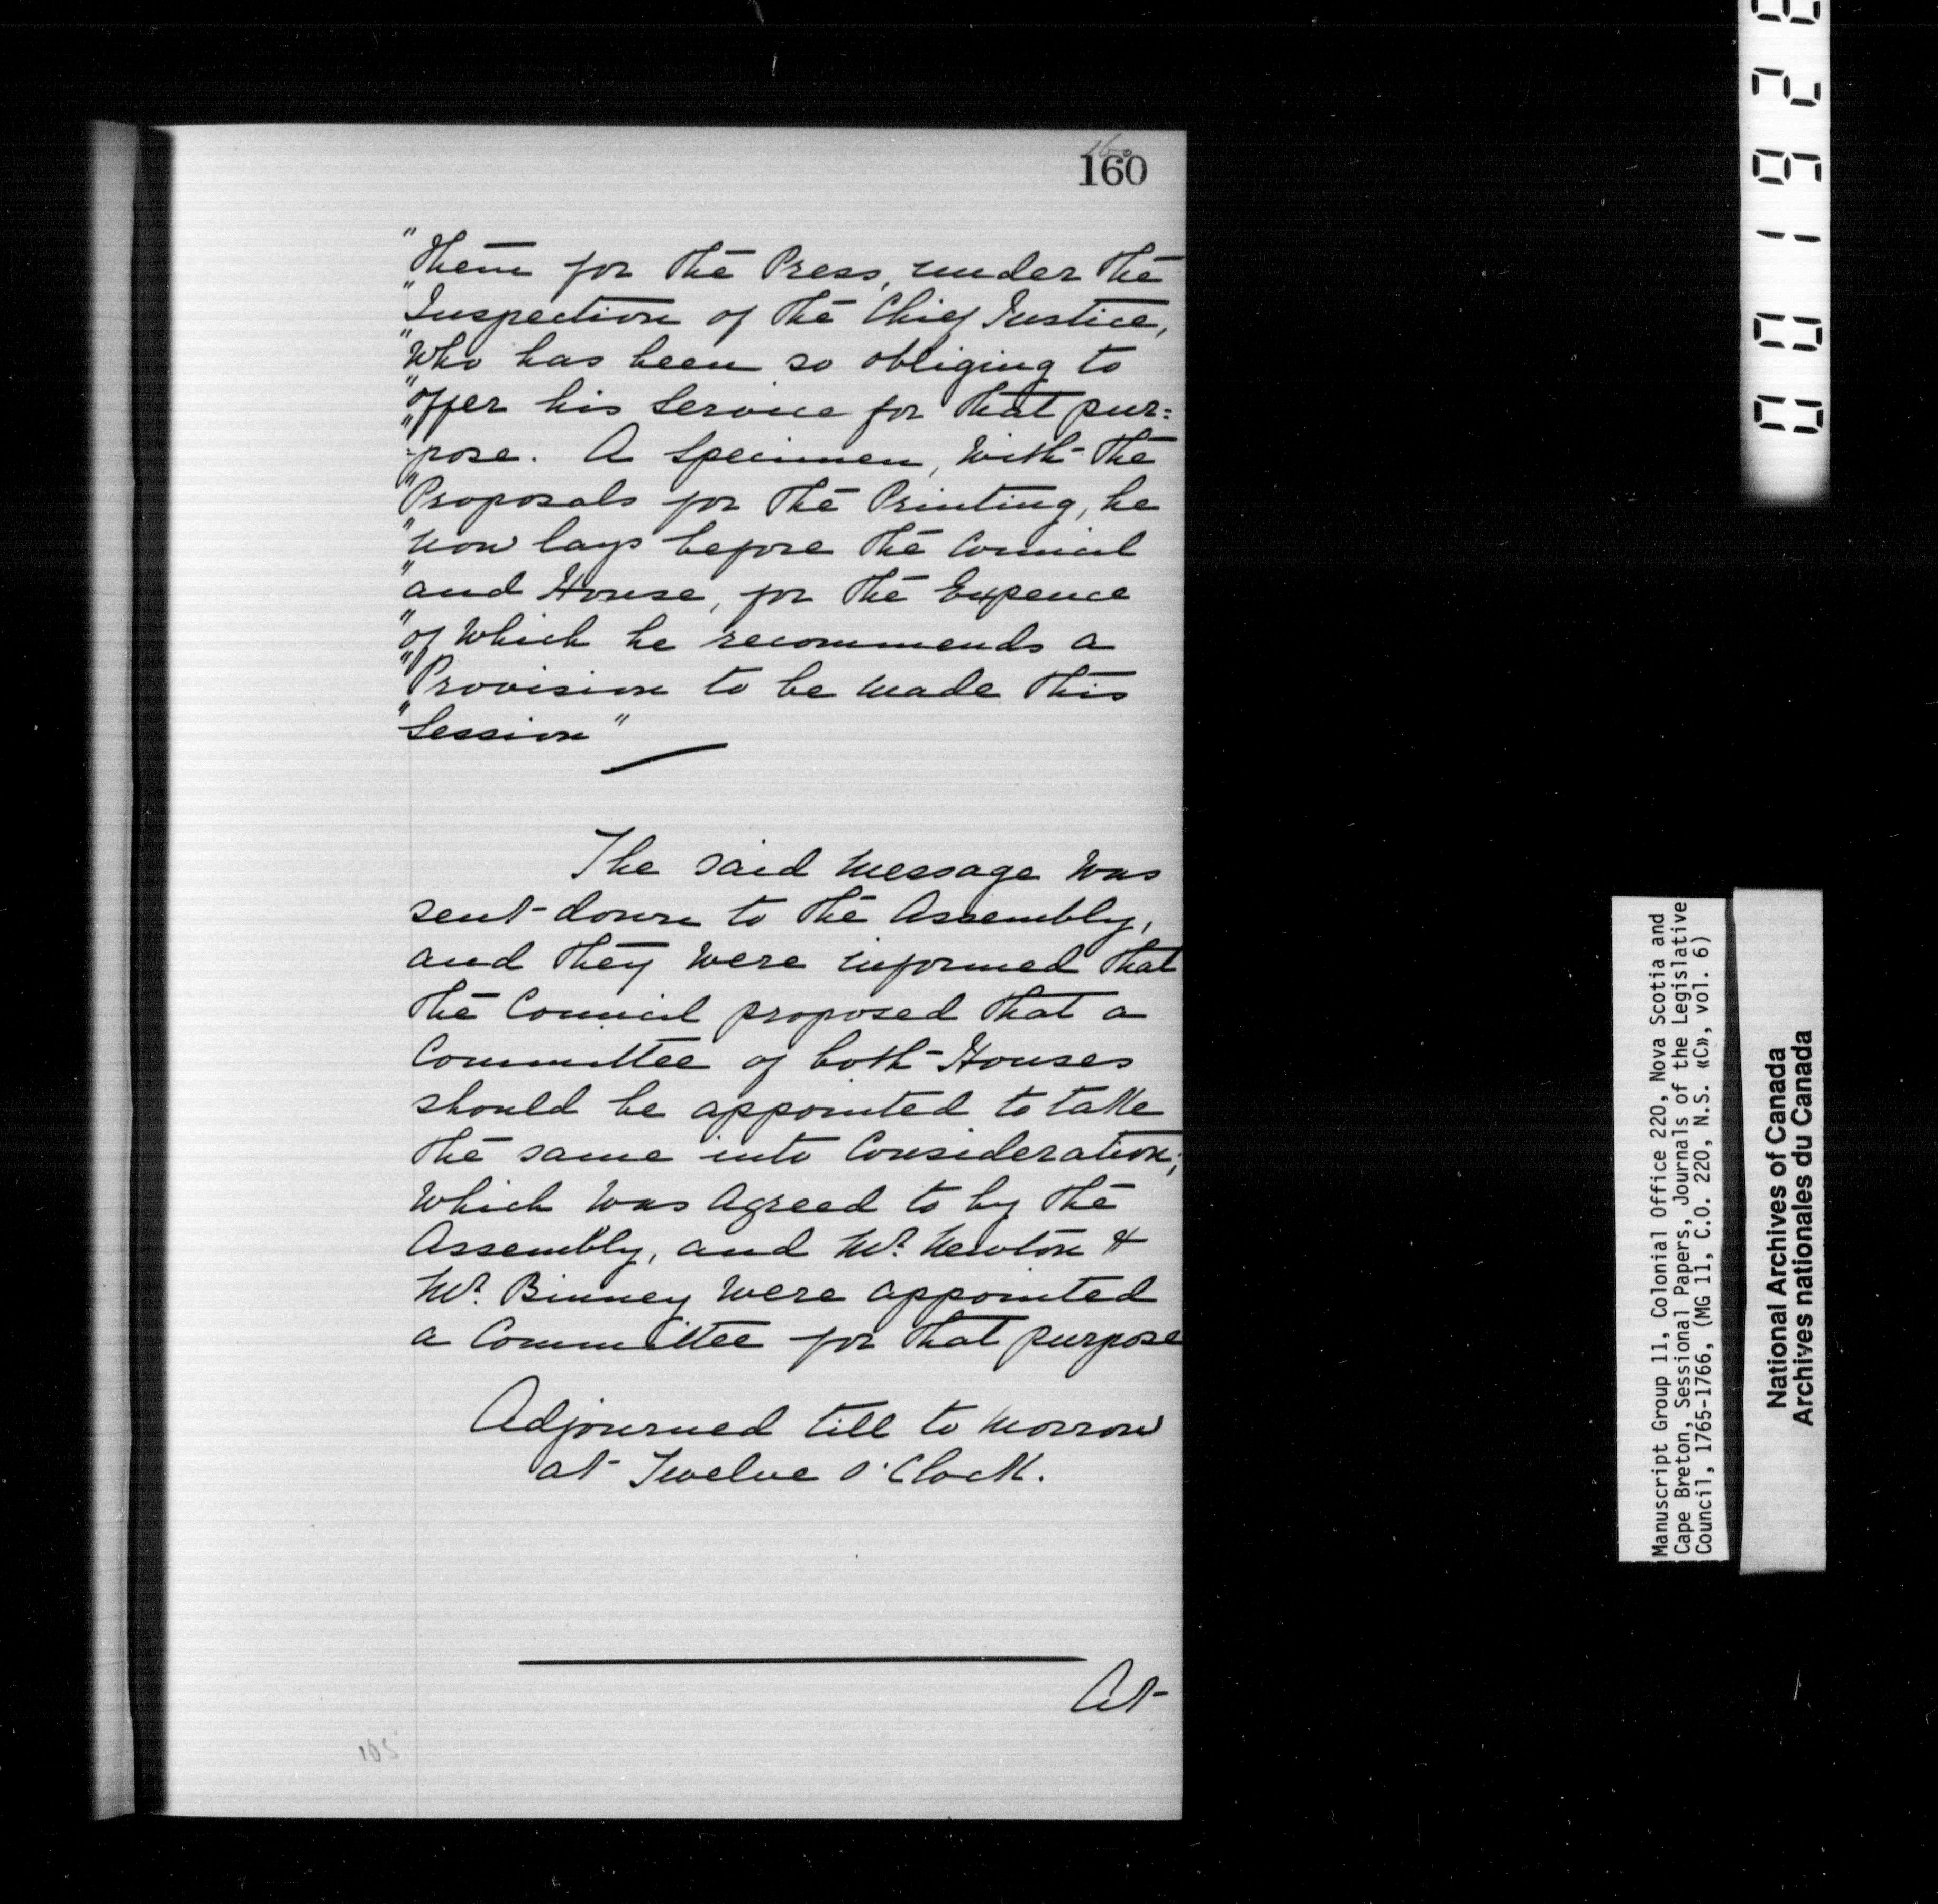 160
160
"them for the Press, under the
"Inspection of the Chief Justice,
"Who has been so obliging to
"offer his Service for that pur=
"=pose. A Specimen, With the
"Proposals for the Printing, he
"now lays before the Council
"and House, for the Expence
"of Which he recommends a
"Provision to be made this
"Session"
The said message was
sent down to the Assembly,
and they were informed that
the Council proposed that a
Committee of both Houses
should be appointed to take
the same into Consideration;
Which was agreed to by the
Assembly, and Mr. Newton &
Mr. Binney were appointed
a Committee for that purpose
Adjourned till to morrow
at Twelve O'Clock.
At
105
Manuscript Group 11, Colonial Office 220, Nova Scotia and
Cape Breton, Sessional Papers, Journals of the Legislative
Council, 1765-1766, (MG 11, C.O. 220, N.S. «C», vol. 6)
National Archives of Canada
Archives nationales du Canada